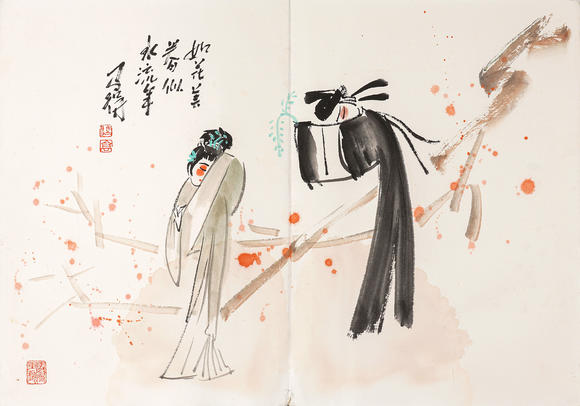 如花美
眷似
水流年
马得